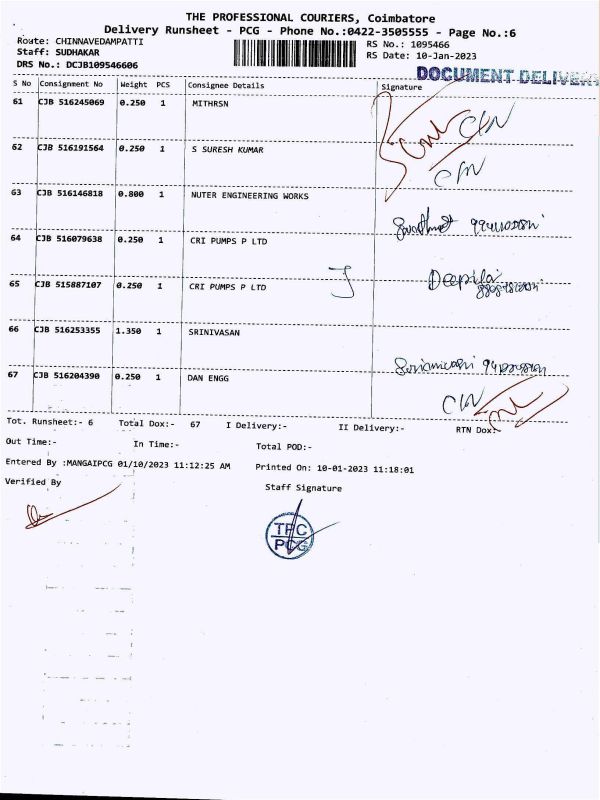 THE PROFESSIONAL COURIERS, Coimbatore
Delivery Runsheet - PCG - Phone No.:0422-3505555 - Page No.:6
Route: CHINNAVEDAMPATTI
RS No.: 1095466
Staff: SUDHAKAR
RS Date: 10-Jan-2023
DRS No.: DCJB109546606
DOCUMENT DELIVER
S No Consignment No Weight PCS Consignee Details Signature
61 CJB 516245069 0.250 1 MITHRSN
62 CJB 516191564 0.250 1 S SURESH KUMAR
63 CJB 516146818 0.800 1 NUTER ENGINEERING WORKS
64 CJB 516079638 0.250 1 CRI PUMPS P LTD
65 CJB 515887107 0.250 1 CRI PUMPS P LTD
Deepika
66 CJB 516253355 1.350 1 SRINIVASAN
67 CJB 516204390 0.250 1 DAN ENGG
Tot. Runsheet:- 6 Total Dox:- 67 I Delivery:- II Delivery:- RTN Dox:
Out Time:- In Time:- Total POD:-
Entered By :MANGAIPCG 01/10/2023 11:12:25 AM Printed On: 10-01-2023 11:18:01
Verified By Staff Signature
TPC
PCG